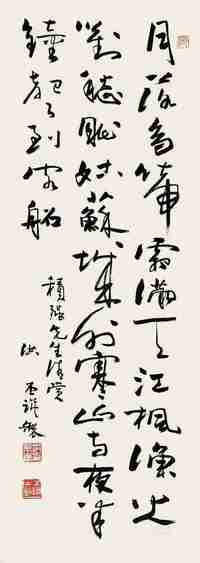 月落烏啼霜滿天江楓漁火
對愁眠姑蘇城外寒山寺夜半
鐘聲到客船
積強先生清賞